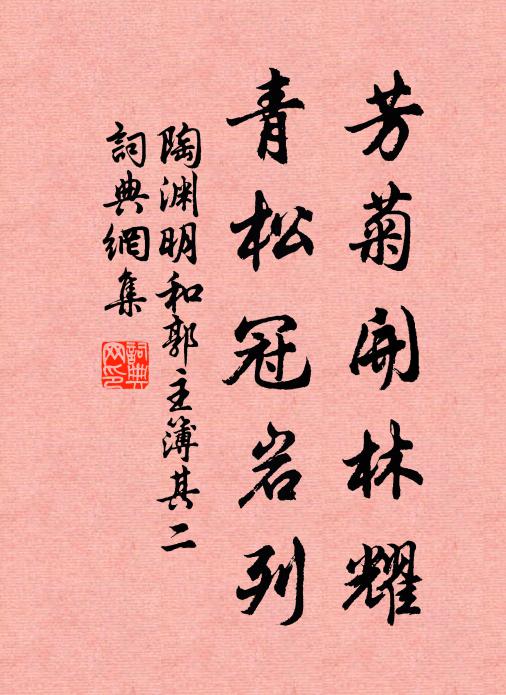 芳菊開林耀
青松冠岩列
陶渊明和郭主簿其二
詞典網集
詞典
网印